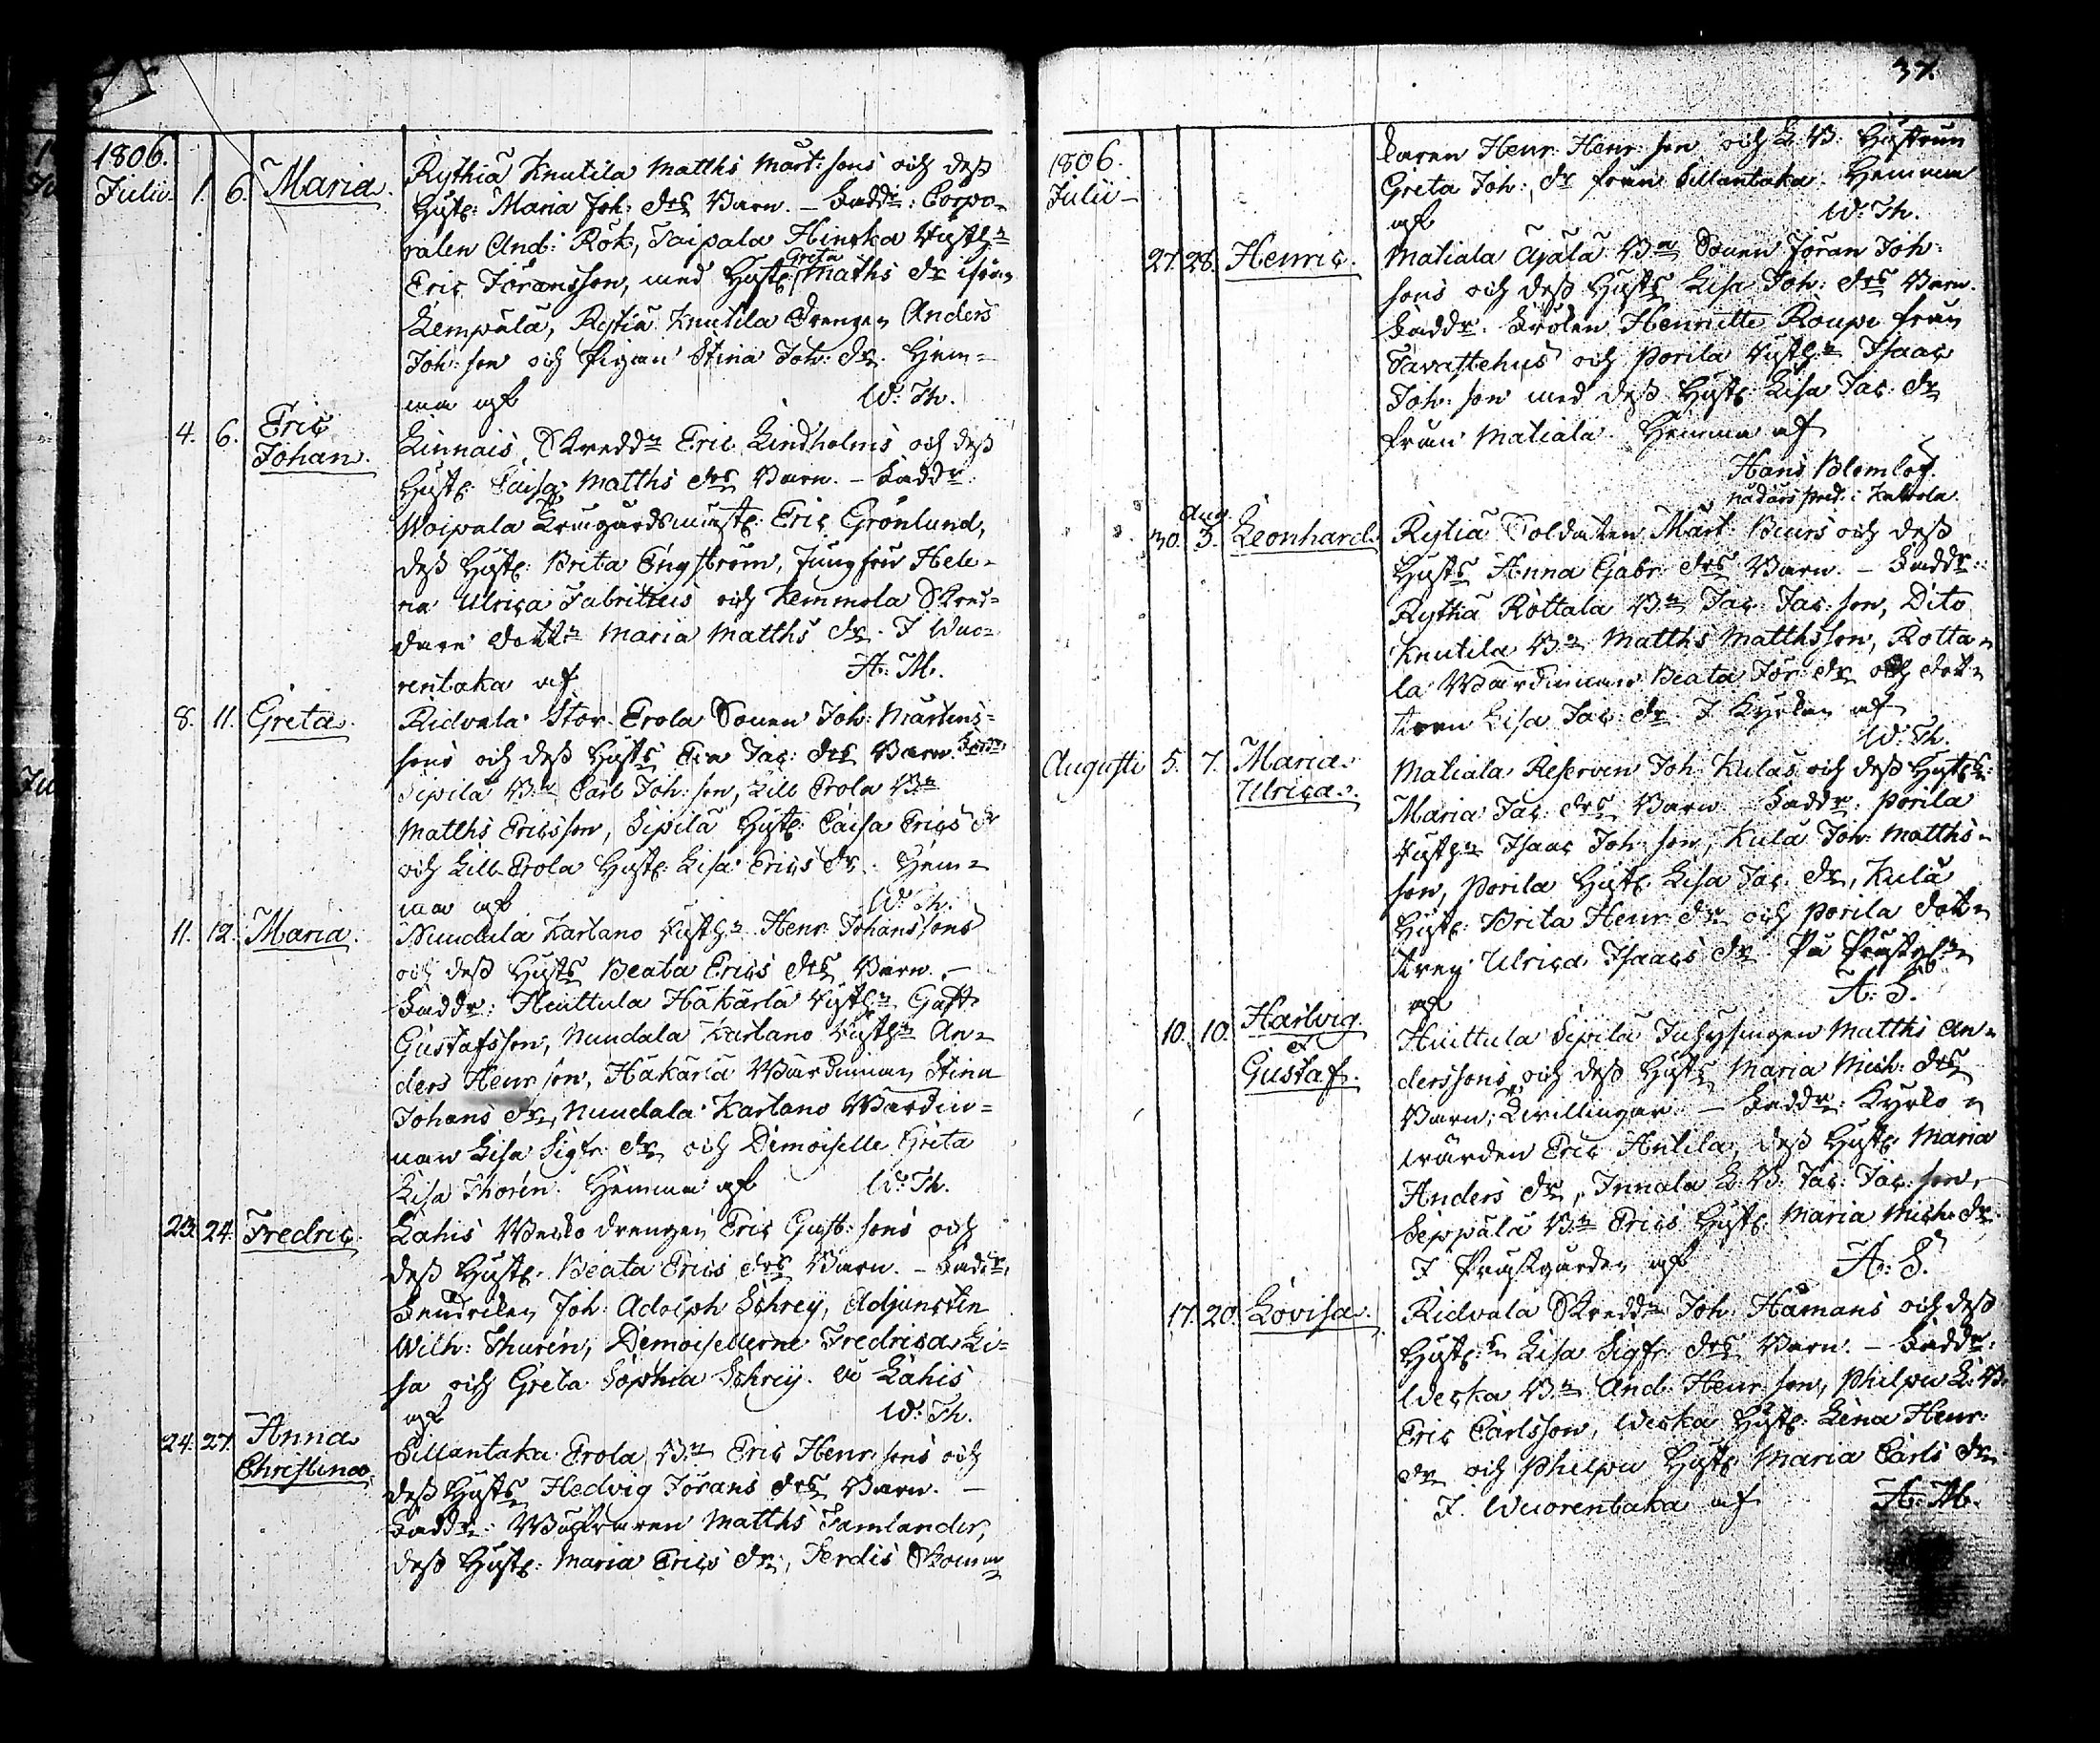 1806.
Julii. 1. 6. Maria. Rythiä Knutila Matths Mårt: sons och dess
Hust: Maria Joh: drs Barn. – Faddr: Corpo-
ralen And: Rök, Taipala Hinska
Greta
Eric Göransson, med Hust: Matths dr ifrån
Lempälä, Rytiä Knutila Drengen Anders
Joh: son och Pigan Stina Joh: dr. Hem-
ma af W: Th.
4. 6. Eric
Johan. Linnais Skreddn Eric Lindholms och dess
Hust: Caisa Matths drs Barn. – Faddr:
Woipala Eric Grönlund,
dess Hust: Brita Engström, Jungfru Hele-
na Ulrica Fabritius och Kemmola Skred-
dare Dottn Maria Matths dr. I Wuo-
rentaka af A: M.
8. 11. Greta. Ridvala Stor Erola Sonen Joh: Mårtens-
sons och dess Husts Eva Jac: drs Barn. Faddr:
Sipilä Bn Carl Joh: son, Lill Erola Bn
Matths Ericsson, Sipilä Hust: Caisa Erics dr
och Lill-Erola Hust: Lisa Erics dr. Hem-
ma af W: Th.
11. 12. Maria. Nuudala Kartano Henr: Johanssons
och dess Husts Beata Erics drs Barn. –
Faddr: Huittula Hakarla Gust:
Gustafsson, Nuudala Kartano An-
ders Henr: son, Hakarla Wärdinnan Stina
Johans dr, Nuudala Kartano Wärdin-
nan Lisa Sigfr: dr och Demoiselle Greta
Lisa Thorén. Hemma af W: Th.
23. 24. Fredric. Lahis drengen Eric Gust: sons och
dess Hust: Beata Erics drs Barn. – Faddr:
Fendriken Joh: Adolph Schrey, Adjuncten
Wilh: Thurén, Demoisellerne Fredrica Li-
sa och Greta Sophia Schrey. På Lahis
af W: Th.
24. 27. Anna
Christina. Sillantaka Erola Bn Eric Henr: sons och
dess Husts Hedvig Görans drs Barn. –
Faddr: Matths Tamlander,
dess Hust: Maria Erics dr, Ferdis Skom
37.
1806.
Julii – karen Henr: Henr: son och L. B. Hustrun
Greta Joh: dr från Sillantaka. Hemma
af W: Th.
27. 28. Henric. Maliala Ajala Bn Sonen Jöran Joh:
sons och dess Husts Lisa Joh: drs Barn.
Faddr: Fröken Henriette Roupe från
Tavastehus och Porila Isaac
Joh: son med dess Hust: Lisa Jac: dr
från Maliala. Hemma af
Hans Blomlöf.
nådårs pred: i Kalvola.
Aug.
30. 3. Leonhard. Rytiä Soldaten Mårt: Buurs och dess
Husts Anna Gabr: drs Barn. – Faddr:
Rythiä Rottala Bn Jac: Jac: son, Dito
Knutila Bn Matths Matthsson, Rotta-
la Wärdinnan Beata Jör: dr och dot-
tren Lisa Jac: dr. I Kyrkan af
W: Th.
Augusti 5. 7. Maria
Ulrica. Maliala Reserven Joh: Kulas och dess Husts:
Maria Jac: drs Barn. Faddr: Porila
Isaac Joh: son, Kula Joh: Matths-
son, Porila Hust: Lisa Jac: dr, Kula
Hust: Brita Henr: dr och Porila dot-
tren Ulrica Isaacs dr. På Prostgln
af A: S.
10. 10. Hartvig
et
Gustaf. Huittula Sipilä Inhysingen Matths An-
derssons och dess Husts Maria Mich: drs
Barn; Tvillingar. – Faddr: Kyrko-
wärden Eric Antila, dess Hust: Maria
Anders dr, Innala L: B. Jac: Jac: son,
Seppälä Bn Erics Hust: Maria Mich: dr.
I Prostgården af A: S.
17. 20. Lovisa. Ridvala Skreddn Joh: Hamans och dess
Hust: Lisa Sigfr: drs Barn. – Faddr:
Weska Bn And: Henr: son, Philpu L: B.
Eric Carlsson, Weska Hust: Lena Henr:
dr och Philpu Hust: Maria Carls dr.
I. Wuorentaka af A: M.